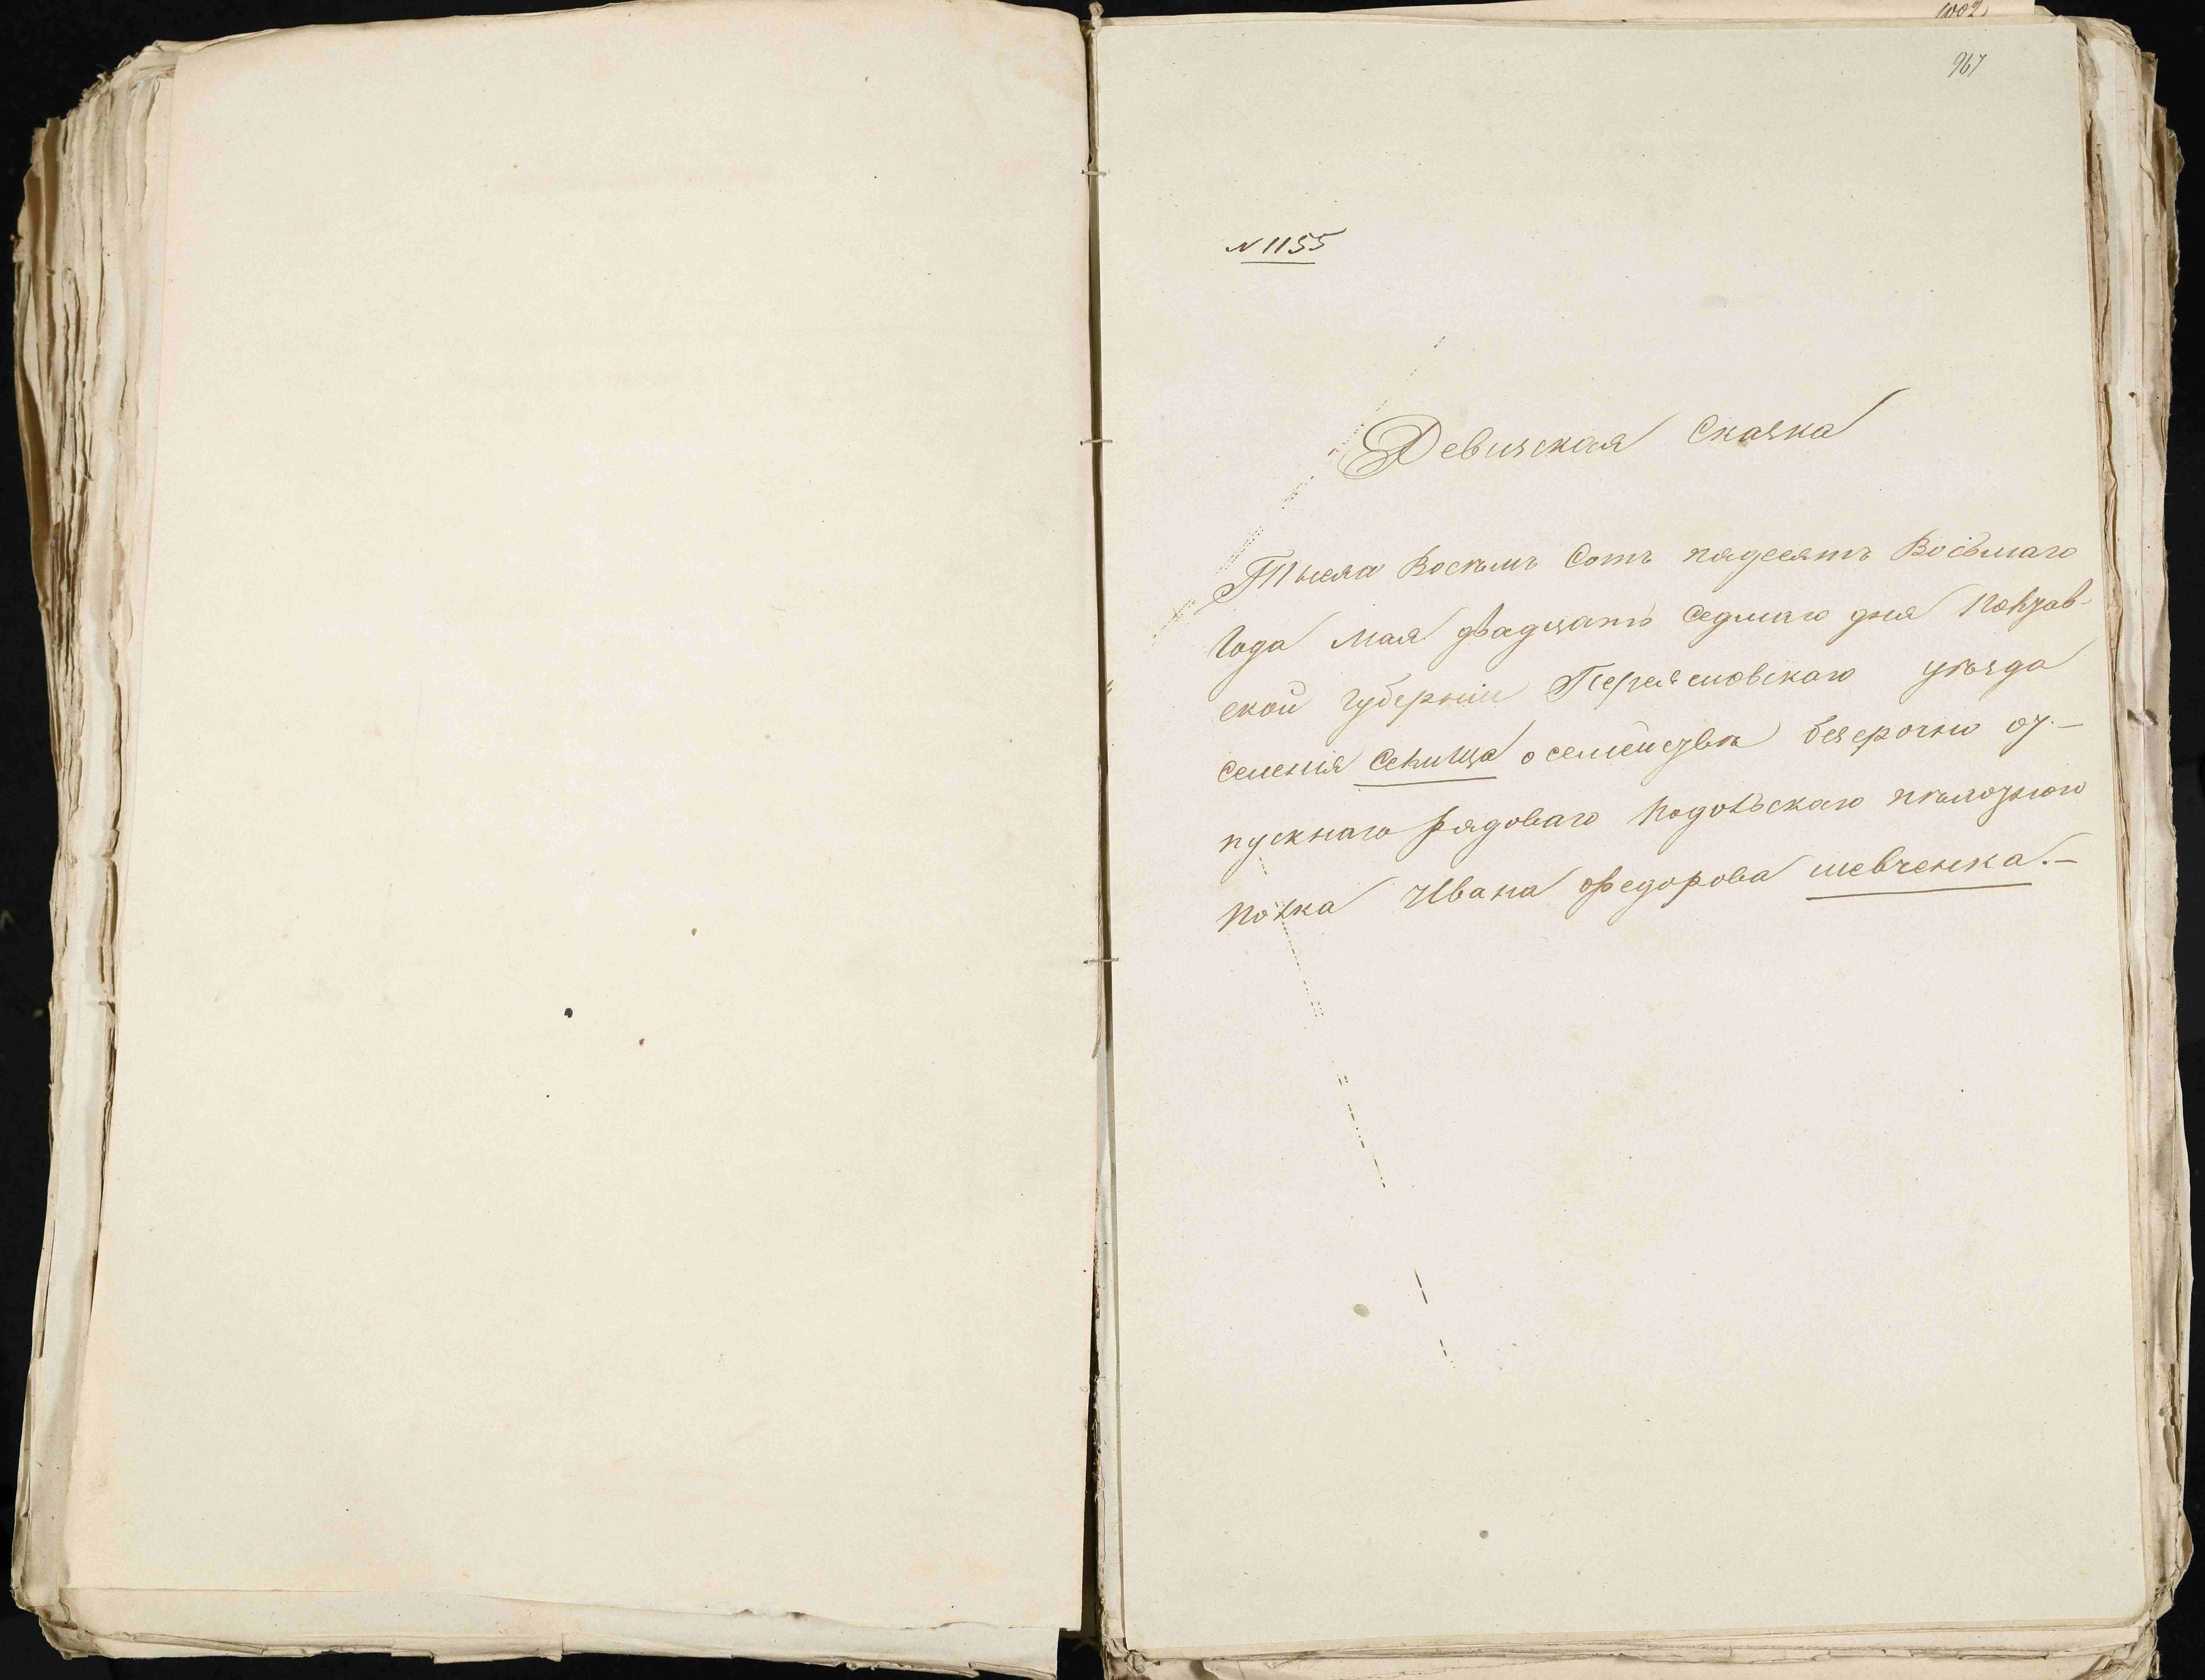 1002
967
N 1155
Девизская Сказка
Тысяа Восемь Сотъ пядесятъ Восьмаго
Года Мая двадцать Седмаго дня Полтав-
ской губерніи Переясловскаго уѣзда
Селенія о семействѣ безсрочно от-
пускнаго рядоваго Подольскаго пѣхотнаго
полка Ивана Федорова шевченка.-